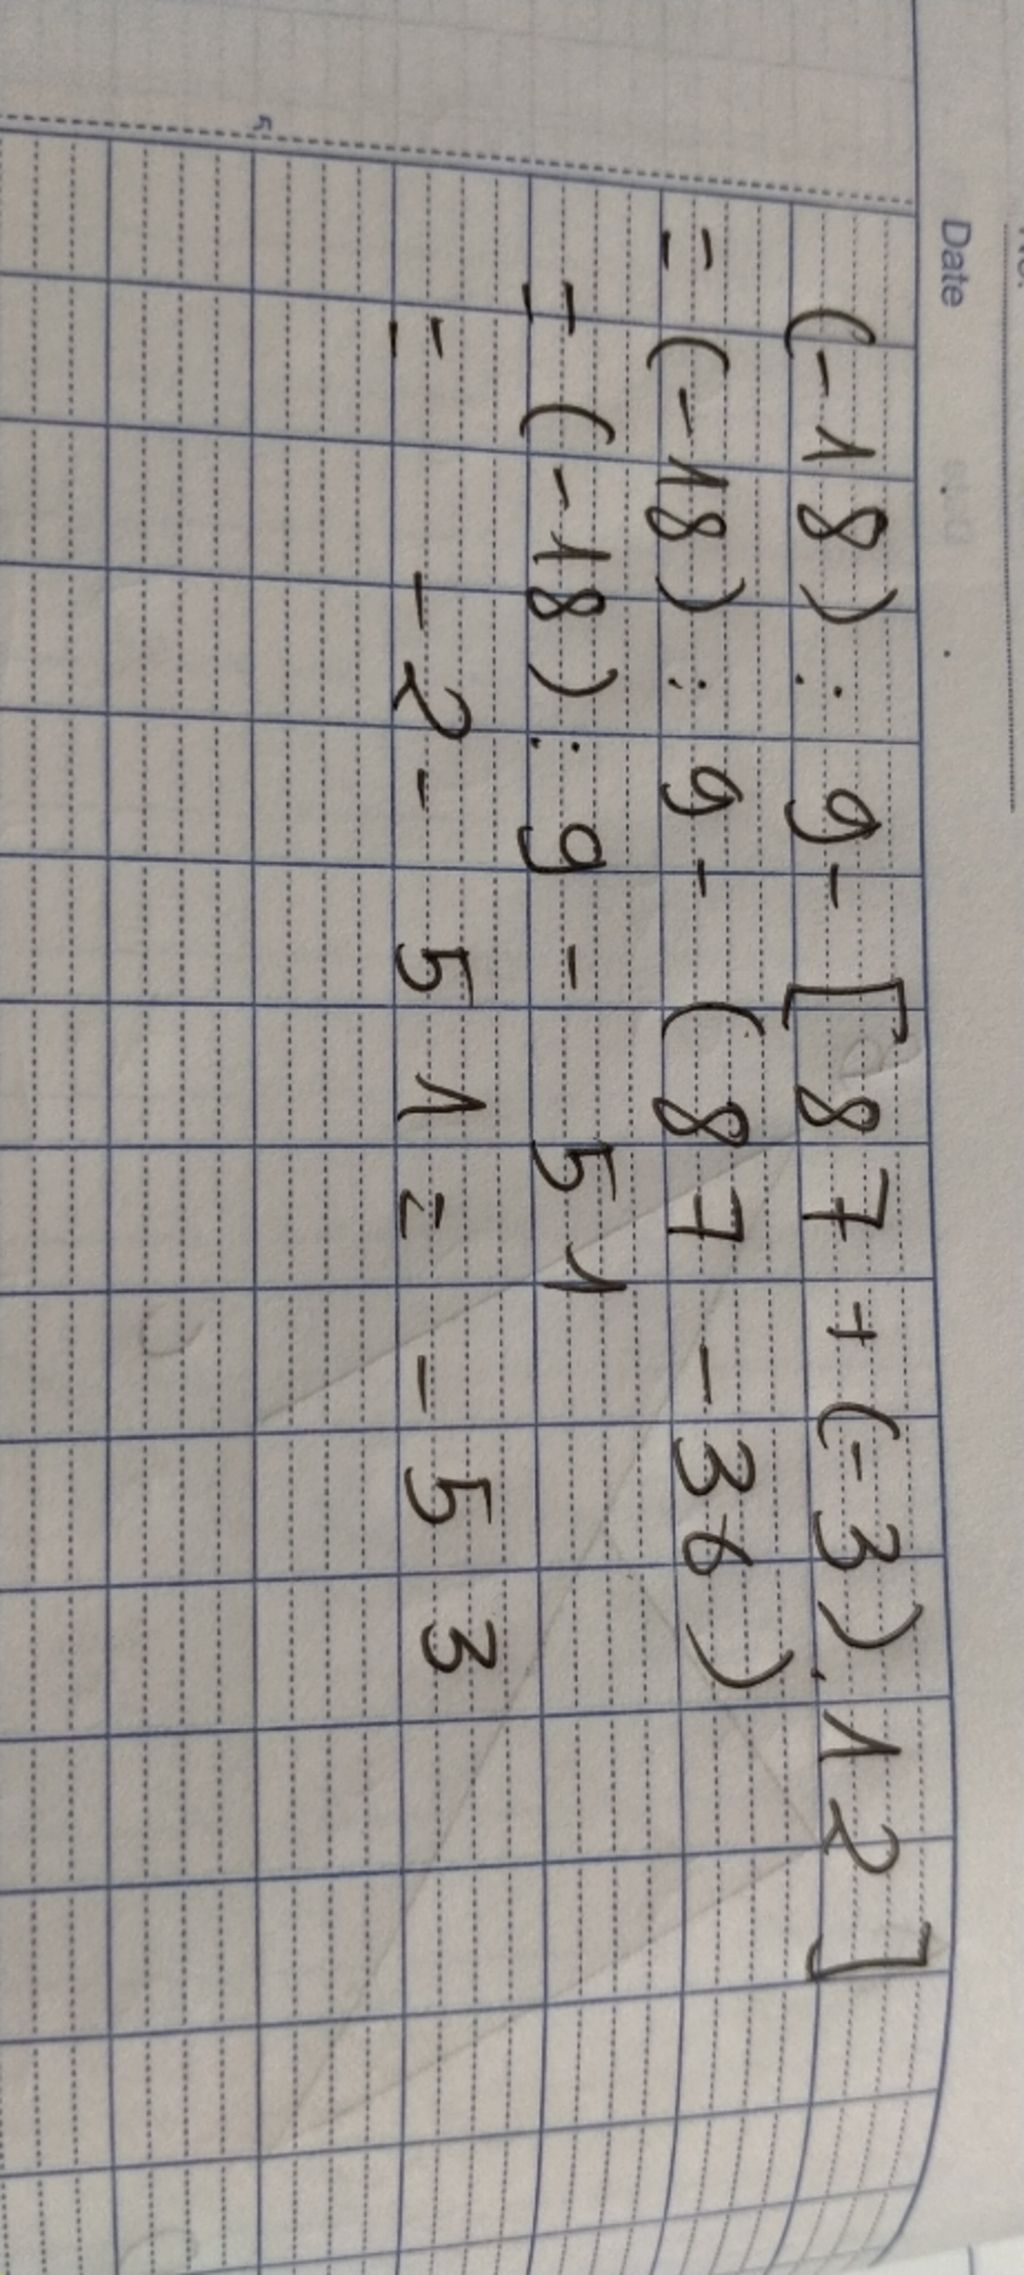 Date
(-18) : 9 - [87 + (-3).12]
= (-18) : 9 - (87 - 36)
= (-18) : 9 - 51
= -2 - 51 = -53